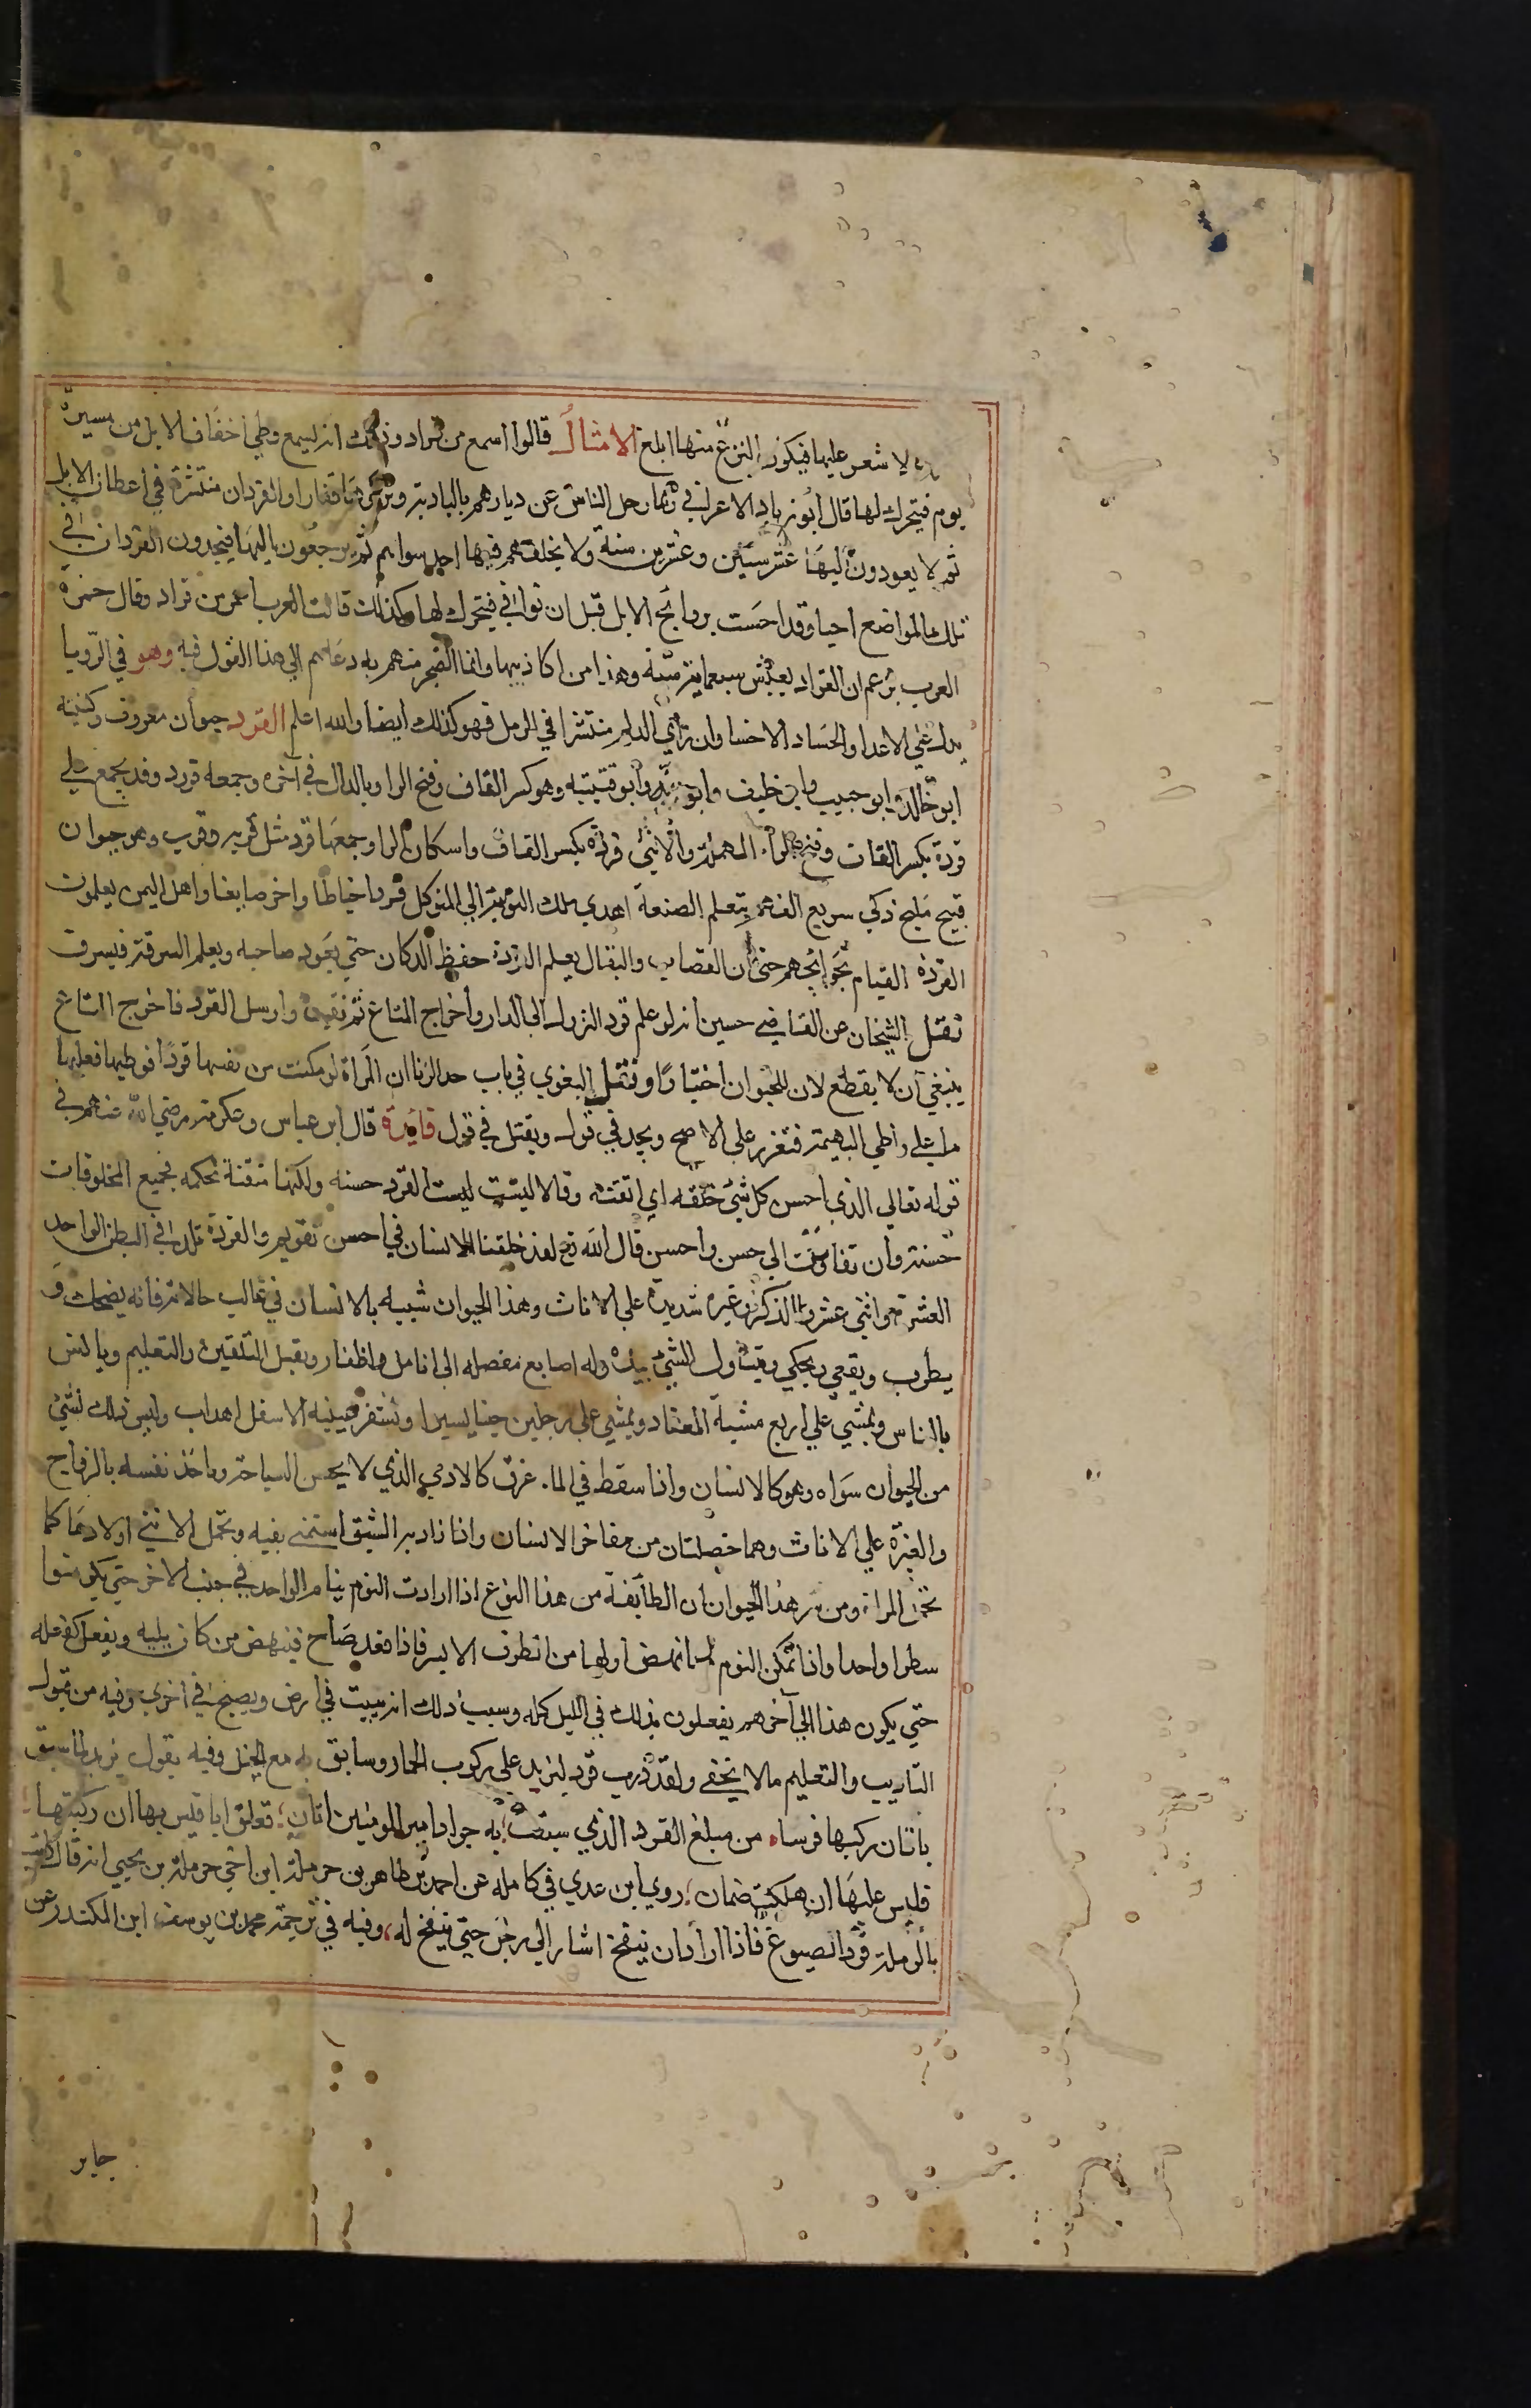 لا شعر عليها فيكون النزغ منها ابلغ الامثال قالوا اسمع من قراد وذلك انه ليسمع وطئ اخفاف الابل من مسيرة
يوم فيتحرك لها قال ابو زياد الاعرابي ربما رحل الناس عن ديارهم بالبادية وتركوها قفارا والقردان منتثرة في اعطان الابل
ثم لا يعودون اليها عشر سنين وعشرين سنة ولا يخلفهم فيها احد سواهم ثم يرجعون اليها فيجدون القردان في
تلك المواضع احيا وقد احست بروائح الابل قبل ان توافي فيتحرك لها وكذلك قالت العرب اعمر من قراد وقال حمزة
العرب تزعم ان القراد يعيش سبعماية سنة وهذا من اكاذيبها وانما الضجر منهم به دعاهم الي هذا القول فيه وهو في الرويا
يدل علي الاعدا والحساد الاخسا وان راي الدلم منتشرا في الرمل فهو كذلك ايضا والله اعلم القرد حيوان معروف وكنيته
ابو خالد وابو حبيب وابو خليف وابو ربه وابو قتيبة وهو كسر القاف وفتح الرا وبالدال في آخره وجمعه قرود وقد يجمع علي
قردة بكسر القاف وفتح الراء المهملة والانثي قردة بكسر القاف واسكان الرا وجمعها قرد مثل قربة وقرب وهو حيوان
قبيح مليح ذكي سريع الفهم يتعلم الصنعة اهدي ملك النوبة الي المتوكل قردا خياطا واخر صايغا واهل اليمن يعلمون
القردة القيام بحوائجهم حتي ان القصاب والبقال يعلم القردة حفظ الدكان حتي يعود صاحبه ويعلم السرقة فيسرق
نقل الشيخان عن القاضي حسين انه لو علم قرد النزول الي الدار واخراج المتاع ثم نقب وارسل القرد فاخرج المتاع
ينبغي ان لا يقطع لان للحيوان اختيارًا ونقل البغوي في باب حد الزنا ان المراة لو مكنت من نفسها قردًا فوطيها فعليها
ما علي واطي البهيمة فتعزر علي الاصح ويحد في قول ويقتل في قول فائدة قال ابن عباس وعكرمة رضي الله عنهم في
قوله تعالي الذي احسن كل شي خلقه اي اتقنه وقالا ليست ليست القرد حسنه ولكنها متقنة محكمه فجميع المخلوقات
حسنة وان تفاوتت الي حسن واحسن قال الله تع لقد خلقنا الانسان في احسن تقويم والقردة تلد في البطن الواحد
العشرة واثني عشر والذكر ذو غيرة شديدة علي الاناث وهذا الحيوان شبيه بالانسان في غالب حالاته فانه يضحك و
يطرب ويقعي ويحكي ويتناول الشي بيده وله اصابع مفصله الي انامل واظفار ويقبل التلقين والتعليم ويانس
بالناس ويمشي علي اربع مشية المعتاد ويمشي علي رجلين حينا يسيرا ولشفر عينيه الاسفل اهداب وليس ذلك لشي
من الحيوان سواه وهو كالانسان واذا سقط في الماء غرق كالادمي الذي لا يحسن السباحة وياخذ نفسه بالزواج
والغيرة علي الاناث وهما خصلتان من مفاخر الانسان واذا زاد به الشبق استمني بفيه وتحمل الانثي اولادها كما
تحمل المراة ومن سر هذا الحيوان ان الطائفة من هذا النوع اذا ارادت النوم ينام الواحد في جنب الاخر حتي يكونوا
سطرا واحدا واذا تمكن النوم انهض اولها من الطرف الايسر فاذا قعد صاح فينهض من كان يليه ويفعل كفعله
حتي يكون هذا الي آخرهم يفعلون ذلك في الليل كله وسبب ذلك انه يبيت في ارض ويصبح في اخري وفيه من قبول
التاديب والتعليم مالا يخفي ولقد درب قرد ليزيد علي ركوب الحمار وسابق به مع الخيل وفيه يقول يزيد لما سبق
باتان ركبها فرسا من مبلغ القرد الذي سبقت به جواد امير المومنين اتان تعلق ابا قيس بها ان ركبتها
فليس عليها ان هلكت ضمان روي ابن عدي في كامله عن احمد بن طاهر بن حرملة ابن اخي حرملة بن يحيي انه قال رايت
بالرملة قردا يصوغ فاذا اراد ان ينفخ اشار الي رجل حتي ينفخ له وفيه في ترجمة محمد بن يوسف ابن المكندر عن
جابر